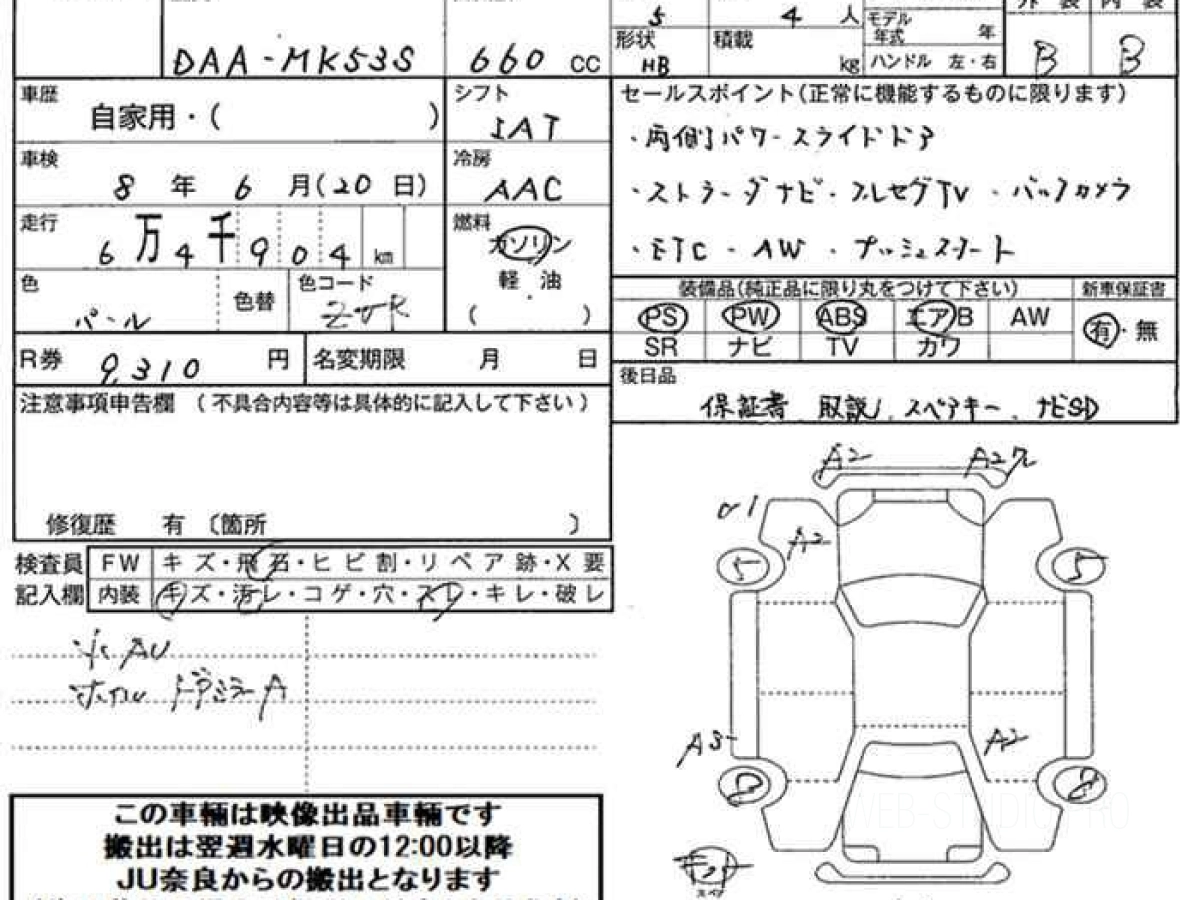 5
4 人
外装 内装
モデル年式 年
DAA-MK53S
660 CC
形状 HB
積載 kg
ハンドル 左・右
B B
車歴
自家用・( )
シフト
IAT
セールスポイント(正常に機能するものに限ります)
・両側パワースライドドア
車検
8 年 6 月(20 日)
冷房
AAC
・ストラーダナビ・フルセグTV ・バックカメラ
走行
6万4千904 km
燃料
ガソリン
軽 油
( )
・ETC ・AW ・プッシュスタート
色
パール
色替
色コード
ZVR
装備品(純正品に限り丸をつけて下さい)
新車保証書
PS PW ABS エアB AW
有・無
SR ナビ TV カワ
R券 9,310 円
名変期限 月 日
後日品
保証書 取説 スペアキー ナビSD
注意事項申告欄 (不具合内容等は具体的に記入して下さい)
修復歴 有 〔箇所 〕
検査員
記入欄
FW キズ・飛石・ヒビ割・リペア跡・X要
内装 キズ・汚レ・コゲ・穴・スレ・キレ・破レ
ドアミラーA
A2
A2
5
5
A3
A2
スペア
この車輛は映像出品車輛です
搬出は翌週水曜日の12:00以降
JU奈良からの搬出となります
WEB-STUDIO.PRO